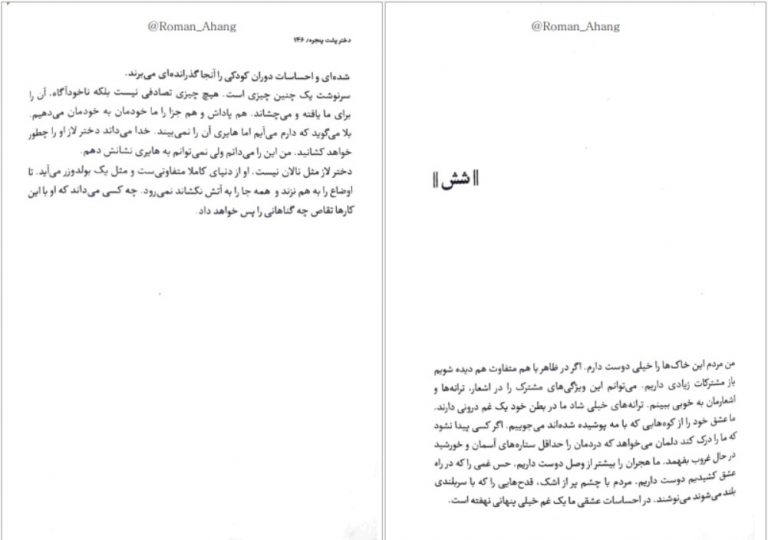 @Roman_Ahang
دختر پشت پنجره/ ۱۴۶
شده‌ای و احساسات دوران کودکی را آنجا گذرانده‌ای می‌برند.
سرنوشت یک چنین چیزی است. هیچ چیزی تصادفی نیست بلکه ناخودآگاه. آن را
برای ما یافته و می‌چشاند. هم پاداش و هم جزا را ما خودمان به خودمان می‌دهیم.
بلا می‌گوید که دارم می‌آیم اما هایری آن را نمی‌بیند. خدا می‌داند دختر لاز او را چطور
خواهد کشانید. من این را می‌دانم ولی نمی‌توانم به هایری نشانش دهم.
دختر لاز مثل نالان نیست. او از دنیای کاملا متفاوتی‌ست و مثل یک بولدوزر می‌آید. تا
اوضاع را به هم نزند و همه جا را به آتش نکشاند نمی‌رود. چه کسی می‌داند که او با این
کارها تقاص چه گناهانی را پس خواهد داد.
@Roman_Ahang
|| شش ||
من مردم این خاک‌ها را خیلی دوست دارم. اگر در ظاهر با هم متفاوت هم دیده شویم
باز مشترکات زیادی داریم. می‌توانم این ویژگی‌های مشترک را در اشعار، ترانه‌ها و
اشعارمان به خوبی ببینم. ترانه‌های خیلی شاد ما در بطن خود یک غم درونی دارند.
ما عشق خود را از کوه‌هایی که با مه پوشیده شده‌اند می‌جوییم. اگر کسی پیدا نشود
که ما را درک کند دلمان می‌خواهد که دردمان را حداقل ستاره‌های آسمان و خورشید
در حال غروب بفهمد. ما هجران را بیشتر از وصل دوست داریم. حس غمی را که در راه
عشق کشیدیم دوست داریم. مردم با چشم پر از اشک، قدح‌هایی را که با سربلندی
بلند می‌شوند می‌نوشند. در احساسات عشقی ما یک غم خیلی پنهانی نهفته است.